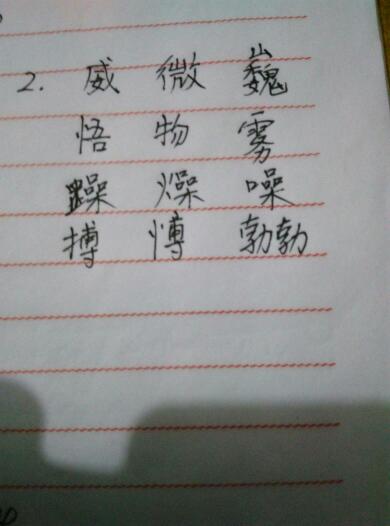 2. 威 微 巍
悟 物 雾
躁 燥 噪
搏 愽 勃勃